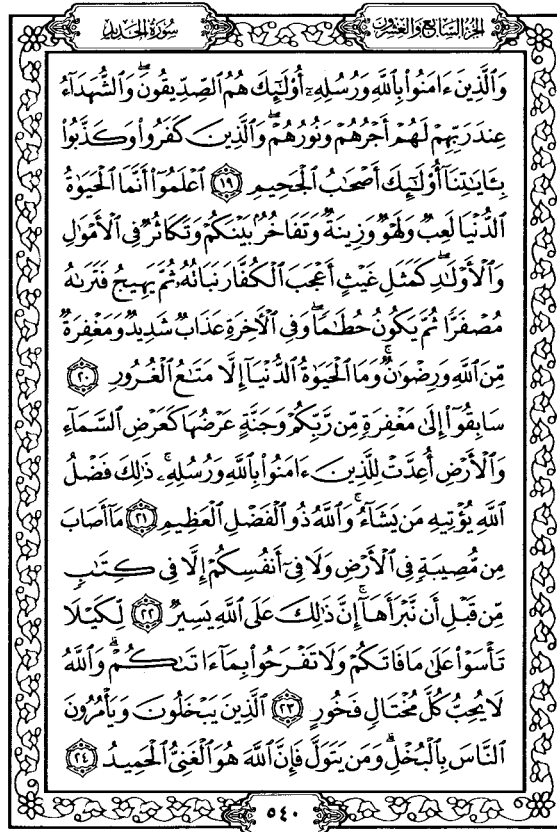 سُورَةُ الحَدِيدِ
الجُزْءُ السَّابِعُ وَالعِشْرُونَ
وَٱلَّذِينَ ءَامَنُوا۟ بِٱللَّهِ وَرُسُلِهِۦٓ أُو۟لَٰٓئِكَ هُمُ ٱلصِّدِّيقُونَۖ وَٱلشُّهَدَآءُ
عِندَ رَبِّهِمْ لَهُمْ أَجْرُهُمْ وَنُورُهُمْۖ وَٱلَّذِينَ كَفَرُوا۟ وَكَذَّبُوا۟
بِـَٔايَٰتِنَآ أُو۟لَٰٓئِكَ أَصْحَٰبُ ٱلْجَحِيمِ ١٩ ٱعْلَمُوٓا۟ أَنَّمَا ٱلْحَيَوٰةُ
ٱلدُّنْيَا لَعِبٌ وَلَهْوٌ وَزِينَةٌ وَتَفَاخُرٌۢ بَيْنَكُمْ وَتَكَاثُرٌ فِى ٱلْأَمْوَٰلِ
وَٱلْأَوْلَٰدِۖ كَمَثَلِ غَيْثٍ أَعْجَبَ ٱلْكُفَّارَ نَبَاتُهُۥ ثُمَّ يَهِيجُ فَتَرَىٰهُ
مُصْفَرًّا ثُمَّ يَكُونُ حُطَٰمًاۖ وَفِى ٱلْأَخِرَةِ عَذَابٌ شَدِيدٌ وَمَغْفِرَةٌ
مِّنَ ٱللَّهِ وَرِضْوَٰنٌۚ وَمَا ٱلْحَيَوٰةُ ٱلدُّنْيَآ إِلَّا مَتَٰعُ ٱلْغُرُورِ ٢٠
سَابِقُوٓا۟ إِلَىٰ مَغْفِرَةٍ مِّن رَّبِّكُمْ وَجَنَّةٍ عَرْضُهَا كَعَرْضِ ٱلسَّمَآءِ
وَٱلْأَرْضِ أُعِدَّتْ لِلَّذِينَ ءَامَنُوا۟ بِٱللَّهِ وَرُسُلِهِۦۚ ذَٰلِكَ فَضْلُ
ٱللَّهِ يُؤْتِيهِ مَن يَشَآءُۚ وَٱللَّهُ ذُو ٱلْفَضْلِ ٱلْعَظِيمِ ٢١ مَآ أَصَابَ
مِن مُّصِيبَةٍ فِى ٱلْأَرْضِ وَلَا فِىٓ أَنفُسِكُمْ إِلَّا فِى كِتَٰبٍ
مِّن قَبْلِ أَن نَّبْرَأَهَآۚ إِنَّ ذَٰلِكَ عَلَى ٱللَّهِ يَسِيرٌ ٢٢ لِّكَيْلَا
تَأْسَوْا۟ عَلَىٰ مَا فَاتَكُمْ وَلَا تَفْرَحُوا۟ بِمَآ ءَاتَىٰكُمْۗ وَٱللَّهُ
لَا يُحِبُّ كُلَّ مُخْتَالٍ فَخُورٍ ٢٣ ٱلَّذِينَ يَبْخَلُونَ وَيَأْمُرُونَ
ٱلنَّاسَ بِٱلْبُخْلِۗ وَمَن يَتَوَلَّ فَإِنَّ ٱللَّهَ هُوَ ٱلْغَنِىُّ ٱلْحَمِيدُ ٢٤
٥٤٠